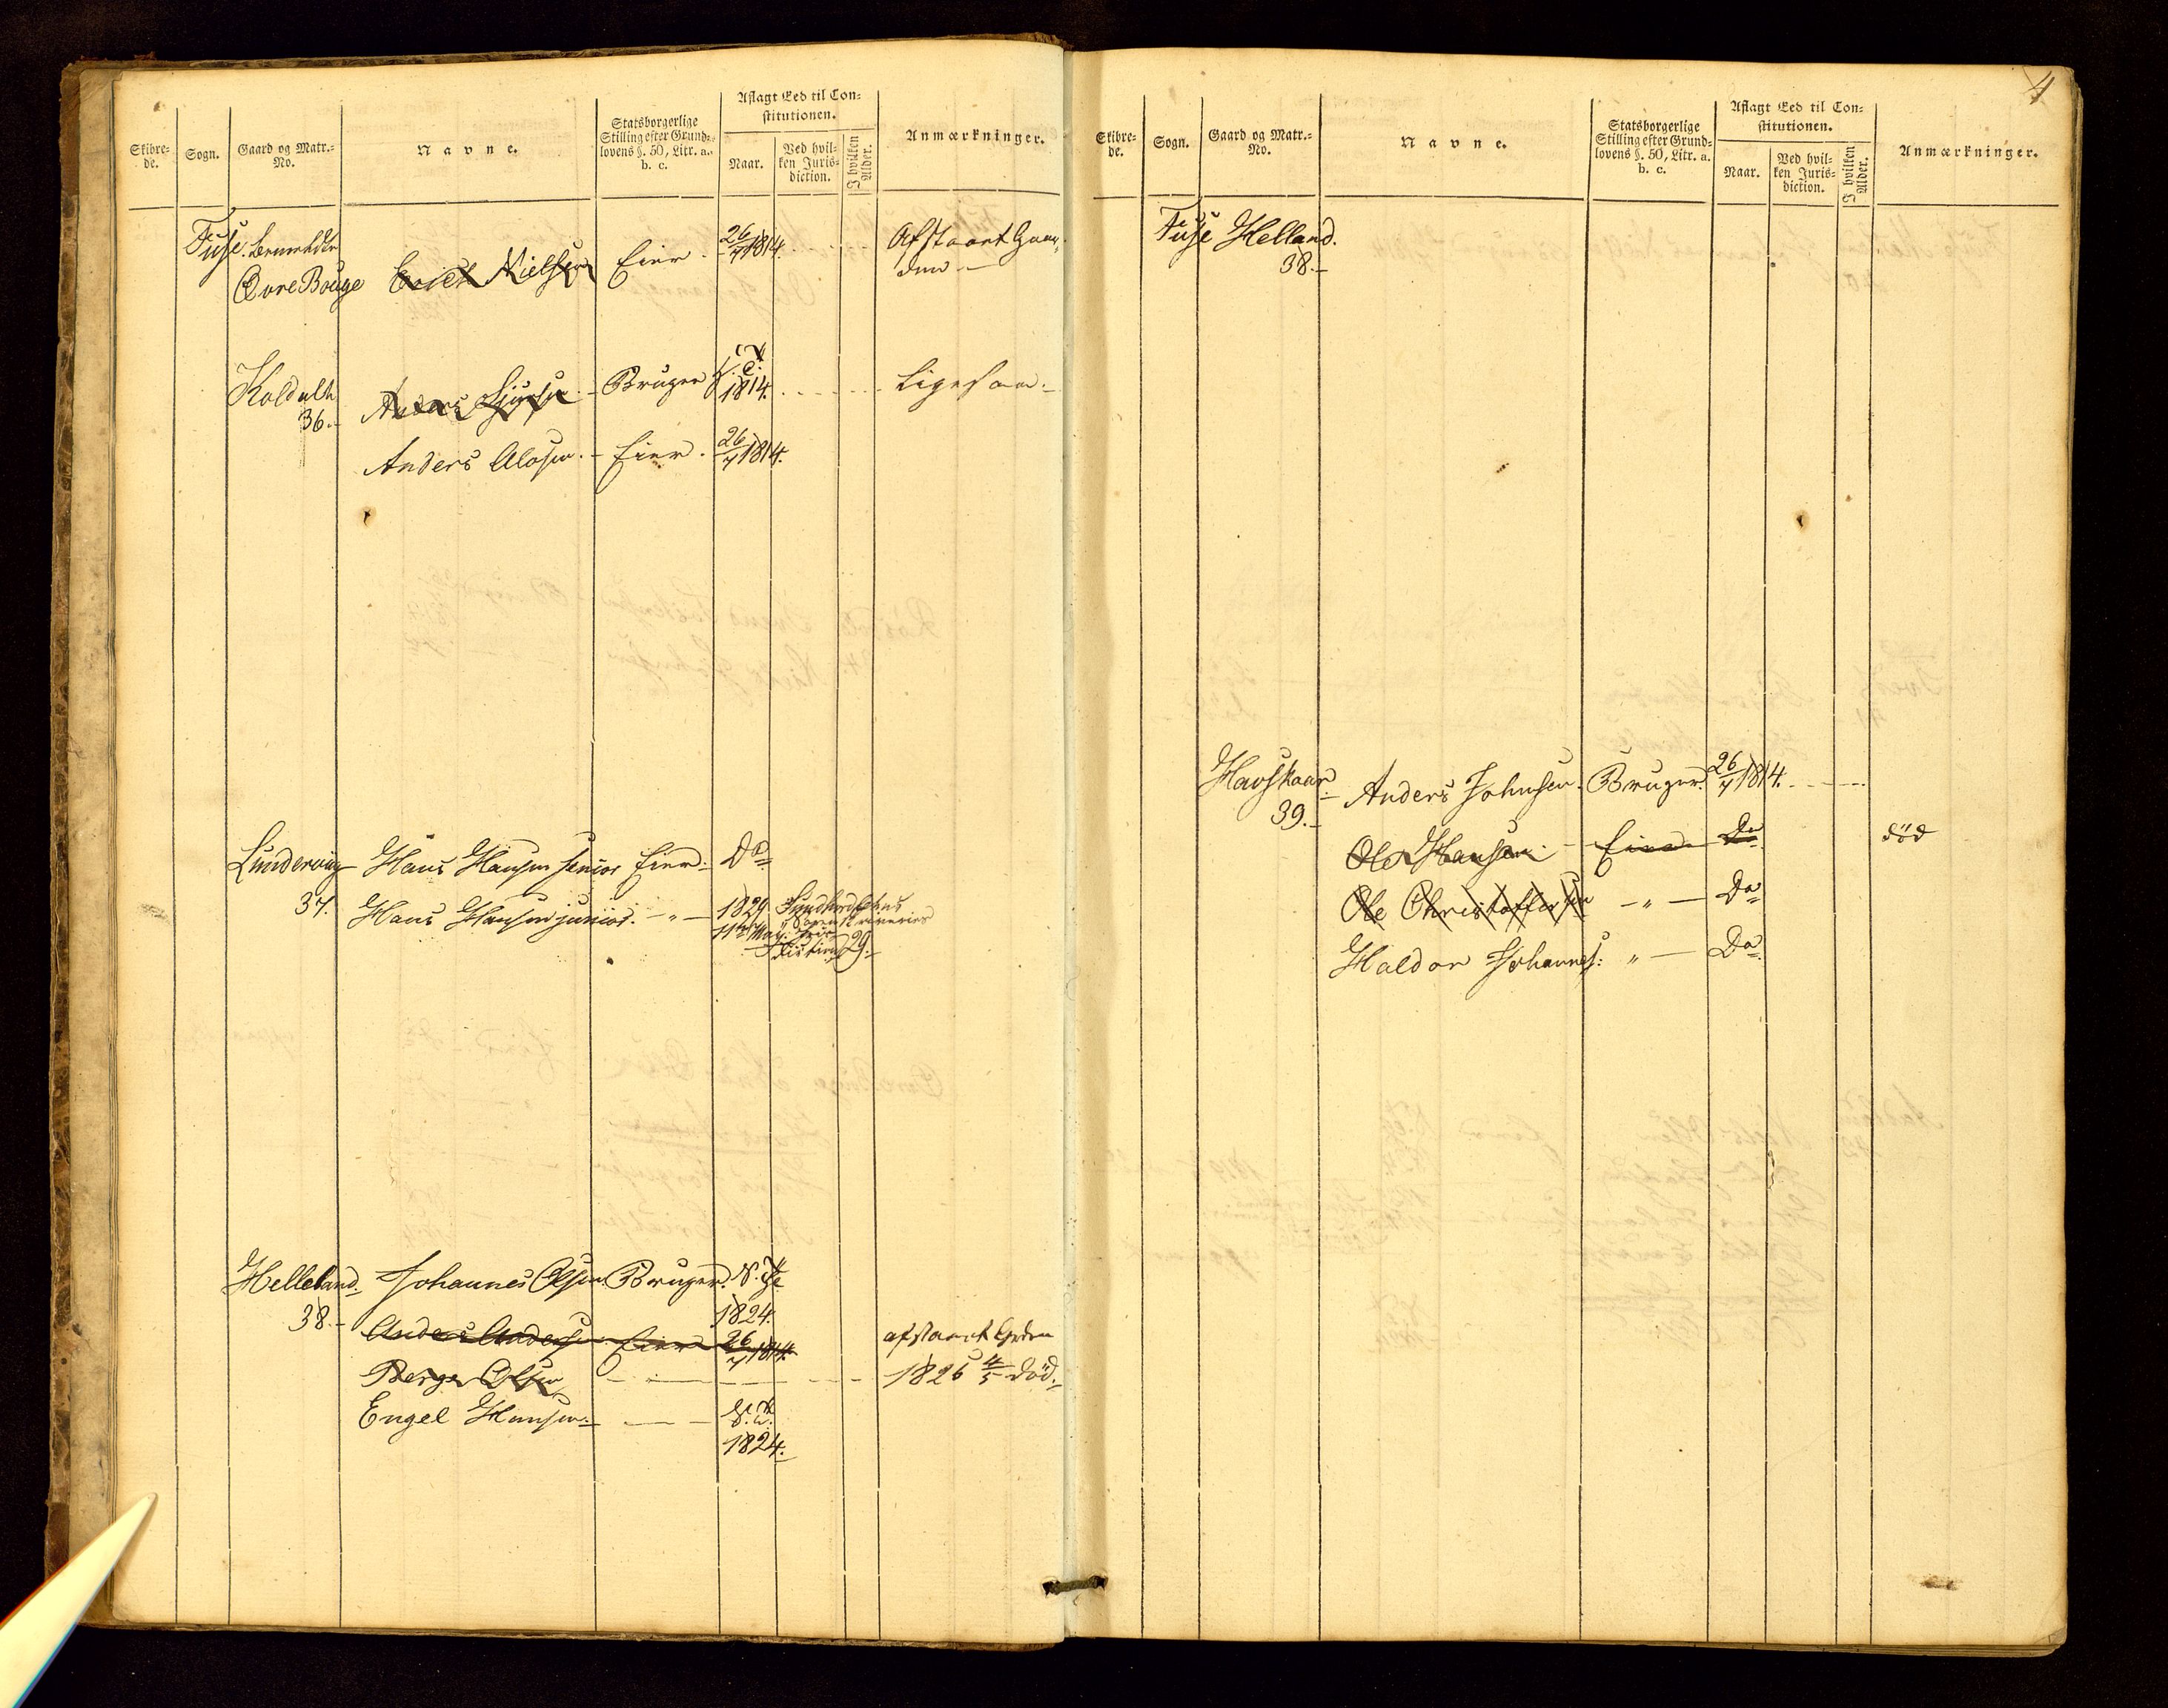 Skibre-
de.
Sogn.
Gaard og Matr.-
No.
Navne.
Statsborgerlige
Stilling efter Grund-
lovens §. 50, Litr. a.
b. c.
Aflagt Eed til Con-
stitutionen.
Naar.
Ved hvil-
ken Juris-
diction.
I hvilken
Alder.
Anmærkninger.
Fuse.
Øvre Bouge Erich Nielsen Eier. 26/7 1814. Afstaaet Gaar-
den
Koldalth Anders Bruger
36. 1814. Ligesaa.
Anders Olosen. Eier. 26/7 1814.
Lundervig Hans Hansen senior Eier. Do
37. Hans Hansen junior. - " - 1829
11te May. 29.
Helleland. Johannes Olsen Bruger.
38. 1824.
Anders Andersen Eier 26/7 1814. afstaaet Grden
Berge Olsen 1826 4/5 död.
Engel Hansen.
1824.
4
Skibre-
de.
Sogn.
Gaard og Matr.-
No.
Navne.
Statsborgerlige
Stilling efter Grund-
lovens §. 50, Litr. a.
b. c.
Aflagt Eed til Con-
stitutionen.
Naar.
Ved hvil-
ken Juris-
diction.
I hvilken
Alder.
Anmærkninger.
Fuse Helland.
38.
Havskaar. Anders Johnsen. Bruger. 26/7 1814.
39.
Ole Hansen. Eier Do död
Ole Christoffersen - " - Do
Haldor Johannes: " - Do